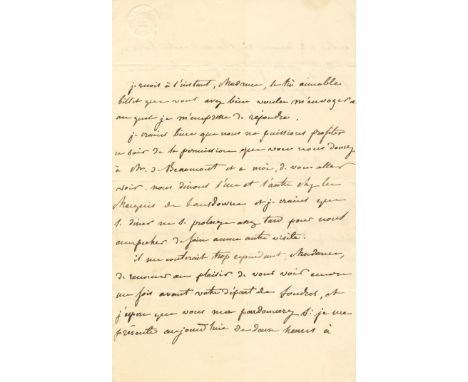 je reçois à l'instant, Madame, le très aimable
billet que vous avez bien voulu m'envoyer et
auquel je m'empresse de répondre.
je crains bien que nous ne puissions profiter
ce soir de la permission que vous nous donnez
à Mr. de Beaumont et à moi, de vous aller
voir. nous dinons l'un et l'autre chez le
Marquis de Lansdowne et je crains que
le diner ne se prolonge assez tard pour nous
empecher de faire aucune autre visite.
il me couterait trop cependant, Madame,
de renoncer au plaisir de vous voir encore
une fois avant votre départ de Londres, et
j'espère que vous me pardonnerez si je me
présente aujourd'hui de deux heures à